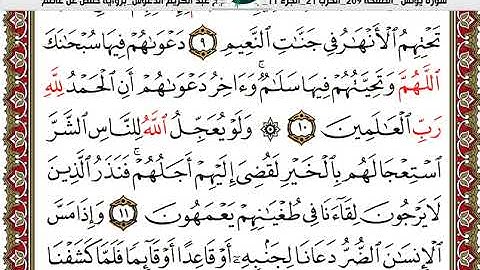 سورة يونس _الصفحة 209_الحزب 21_الجزء 11_ عبد الكريم الدغوش_برواية حفص عن عاصم
تَحْتِهِمُ ٱلْأَنْهَٰرُ فِى جَنَّٰتِ ٱلنَّعِيمِ ٩ دَعْوَىٰهُمْ فِيهَا سُبْحَٰنَكَ
ٱللَّهُمَّ وَتَحِيَّتُهُمْ فِيهَا سَلَٰمٌ ۚ وَءَاخِرُ دَعْوَىٰهُمْ أَنِ ٱلْحَمْدُ لِلَّهِ
رَبِّ ٱلْعَٰلَمِينَ ١٠ ۞ وَلَوْ يُعَجِّلُ ٱللَّهُ لِلنَّاسِ ٱلشَّرَّ
ٱسْتِعْجَالَهُم بِٱلْخَيْرِ لَقُضِىَ إِلَيْهِمْ أَجَلُهُمْ ۖ فَنَذَرُ ٱلَّذِينَ
لَا يَرْجُونَ لِقَآءَنَا فِى طُغْيَٰنِهِمْ يَعْمَهُونَ ١١ وَإِذَا مَسَّ
ٱلْإِنسَٰنَ ٱلضُّرُّ دَعَانَا لِجَنۢبِهِۦٓ أَوْ قَاعِدًا أَوْ قَآئِمًا فَلَمَّا كَشَفْنَا